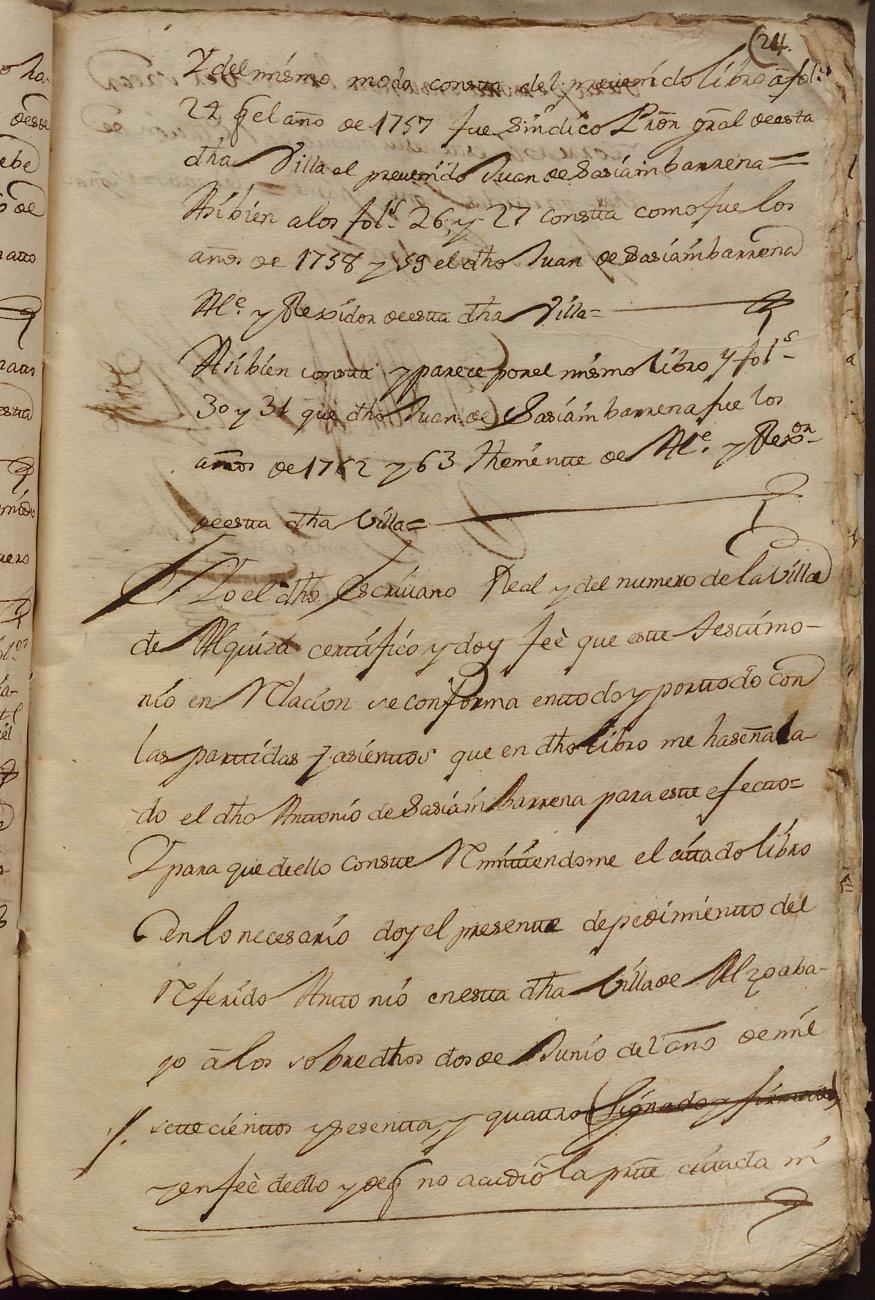 (24.
Y del mismo modo consta del prevenido libro a fol.s
24 q̃ el año de 1757 fue Sindico Prõn grãl de esta
dh̃a Villa el prevenido Juan de Sasiambarrena=
Asi bien a los fol.s 26, y 27 consta como fue los
años de 1758 y 59 el dh̃o Juan de Sasiambarrena
Al.e y Rexidor de esta dh̃a Villa=
Asi bien consta y parece por el mismo libro y fol.s
30 y 31 que dh̃o Juan de Sasiambarrena fue los
años de 1762 y 63 Theniente de Al.e y Rex.or
de esta dh̃a Villa=
Yo el dh̃o Escrivano Real y del numero de la Villa
de Alquiza certtifico y doy feè que este Testimo-
nio en Relacion se conforma en ttodo y por ttodo con
las parttidas y asienttos que en dh̃o libro me ha señala-
do el dh̃o Anttonio de Sasiambarrena para este efectto=
Y para que de ello conste Remittiendome el cittado libro
en lo necesario doy el presentte de pedimientto del
Referido Anttonio en esta dh̃a Villa de Alzo aba-
jo à los sobredh̃os dos de Junio del año de mil
settecienttos y sesentta, y quattro (Signado y firmado)
y en feè de ello y de q̃ no acudiò la pãrte cittada mi